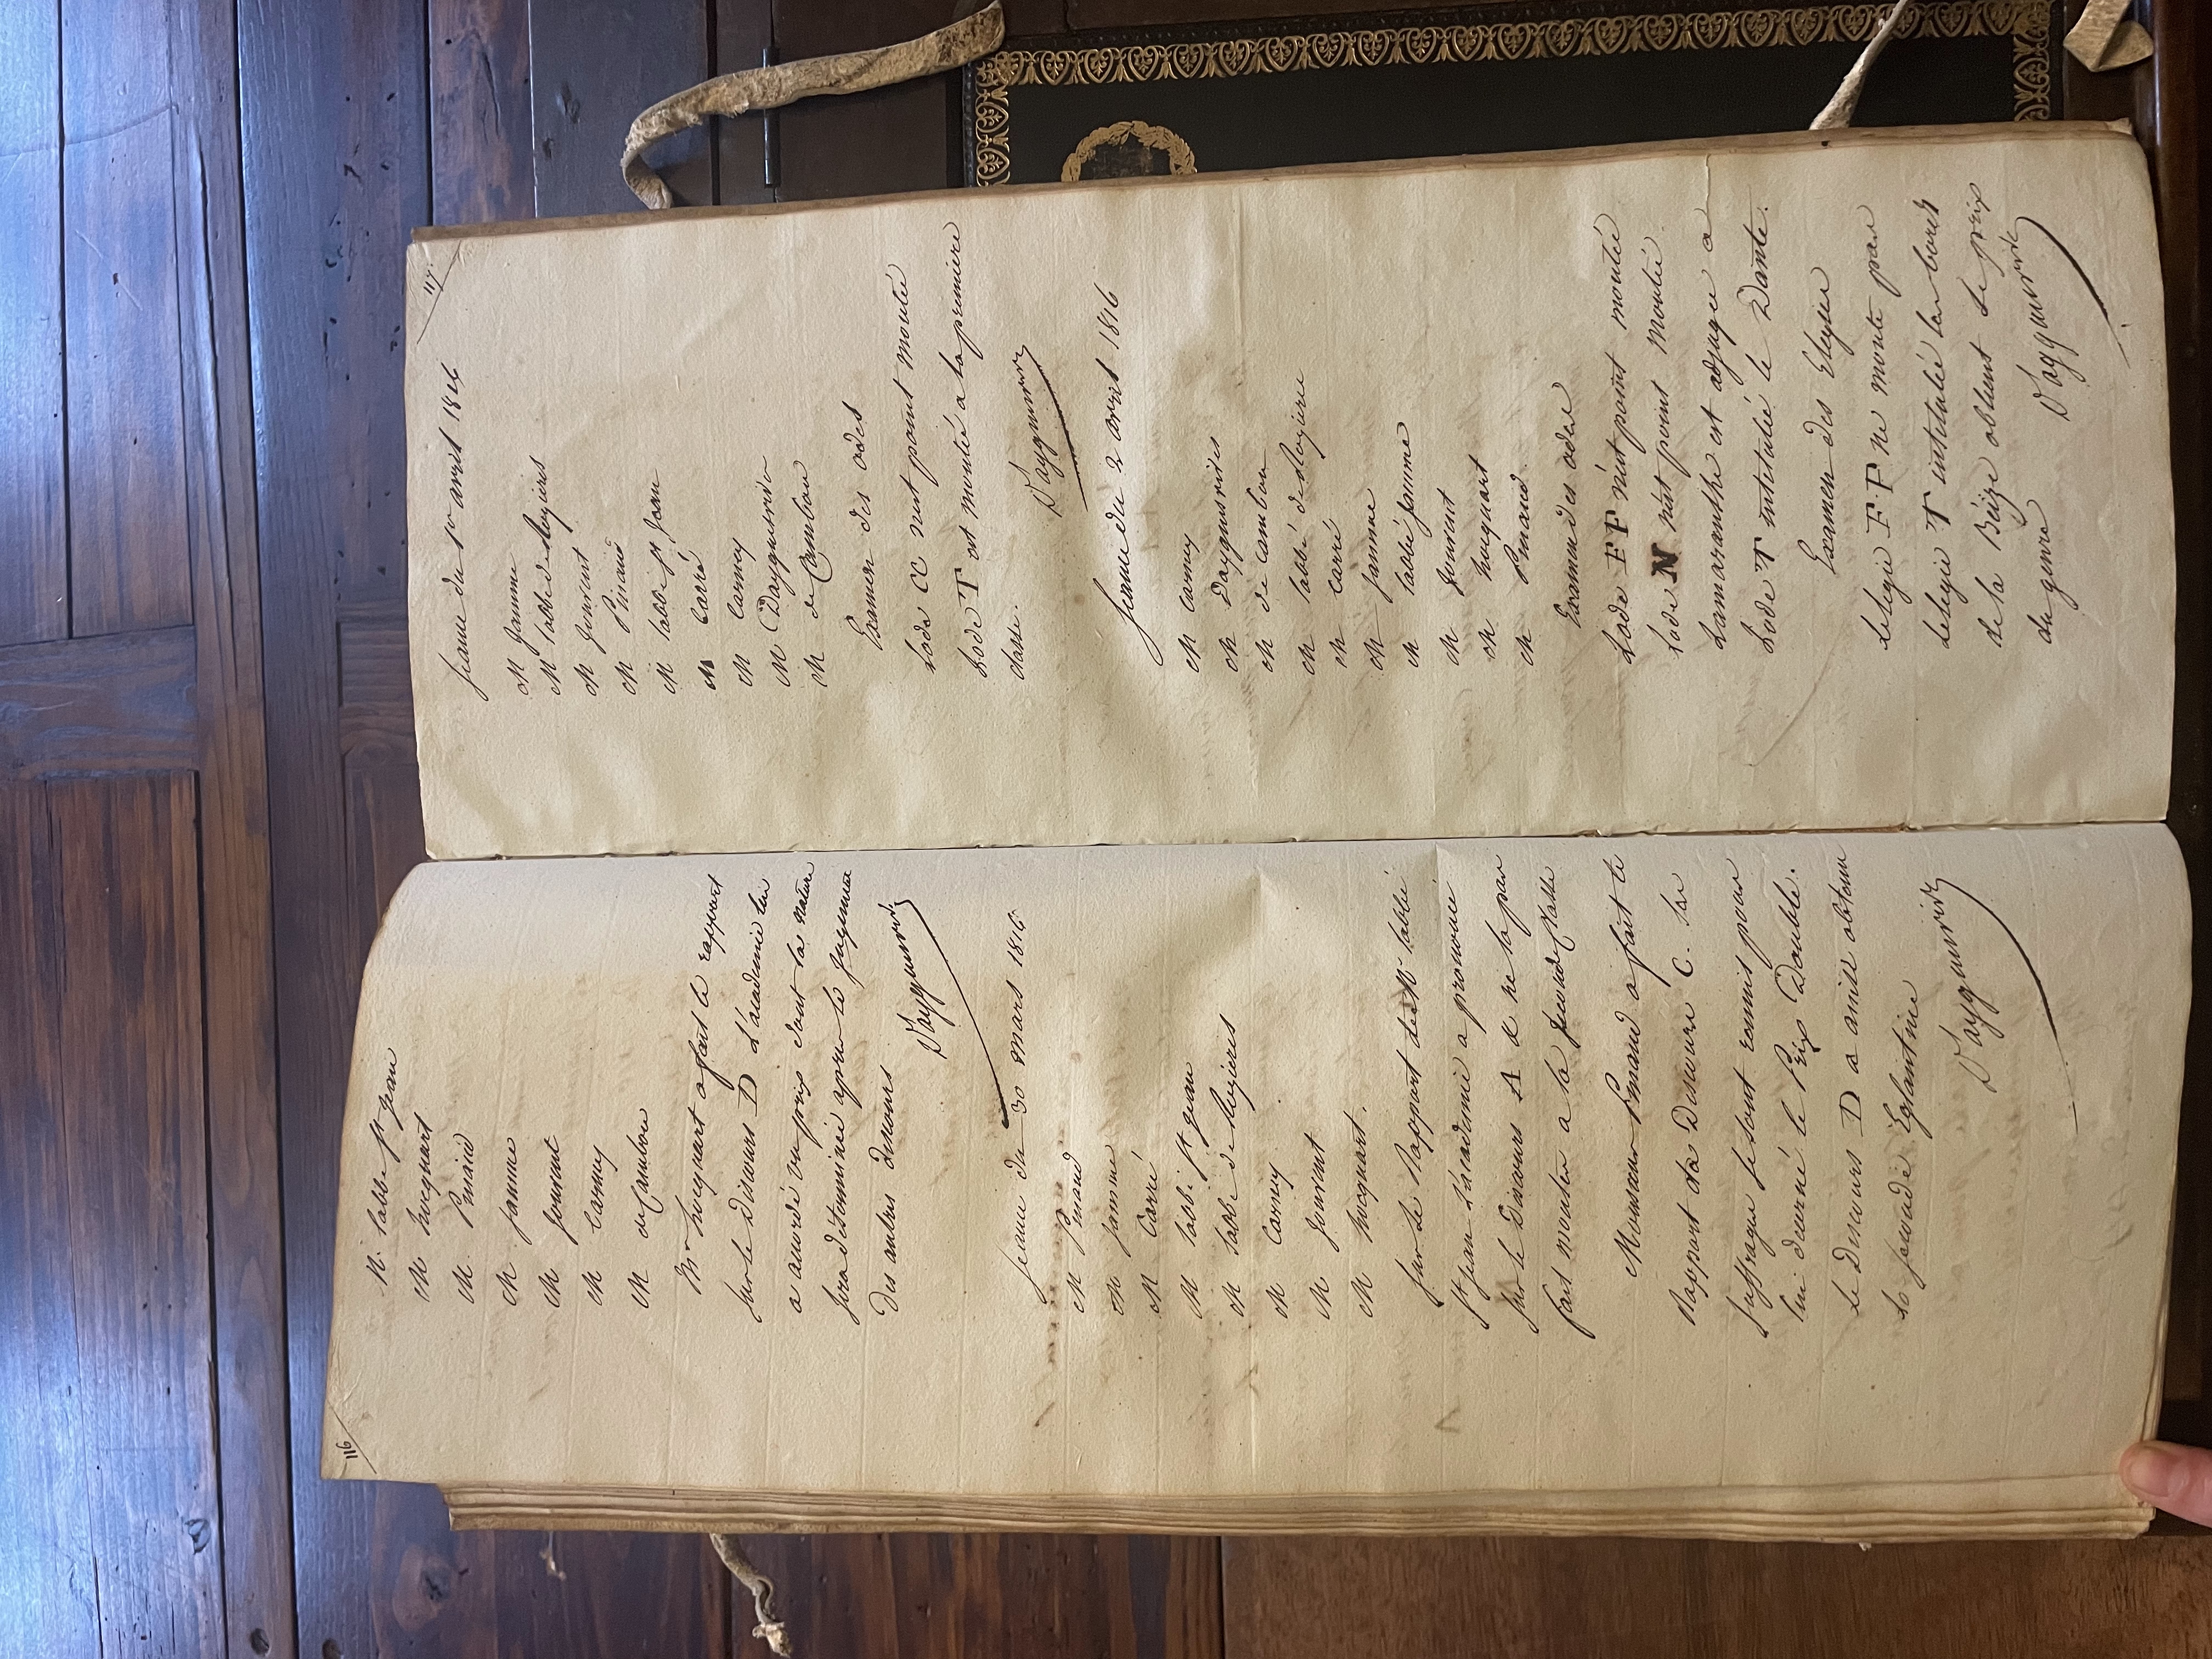 116
M. labbé St jean
M hocquart
M. Pinaud
M jamme
M jouvent
M Carney
M de Cambon
Mr hocquart a fait le rapport
sur le discours D L'academie lui
a accordé un prix dont la nature
sera déterminée apres le jugement
des autres discours
D'ayguesvives
seance du 30 mars 1816
M Pinaud
M jamme
M Carré
M labbé St jean
M labbé de Rozieres
M Carney
M jouvent
M hocquart.
sur le Rapport de Mr labbé
St jean L'academie a prononcé
sur le Discours A de ne la pas
fait monter a la seconde classe
Monsieur Pinaud a fait le
Rapport du Discours C. les
suffrages se sont reunis pour
lui decerné le Prix Double.
le Discours D a ainsi obtenu
la seconde Eglantine
D'ayguesvives
117
seance du 1er avril 1816
M jamme
M labbé de Rozieres
M jouvent
M Pinaud
M labbé St jean
M Carré
M Carney
M Dayguesvives
M de Cambon
Examen des odes
Lode CC n'est point montée
Lode T est montée a la premiere
classe.
D'ayguesvives
seance du 2 avril 1816
M carney
M dayguesvives
M de cambon
M labbé de Rozieres
M carré
M jamme
M labbé jamme
M jouvent
M hocquart
M Pinaud
Examen des odes
Lode FF n'est point montée
Lode N n'est point montée
Lamaranthe est adjugee a
Lode T intitulée le Dante.
Examen des Elegies
Lelegie F.F ne monte pas
Lelegie T intitulée les bords
de la Bèize obtient le prix
du genre
D'ayguesvives